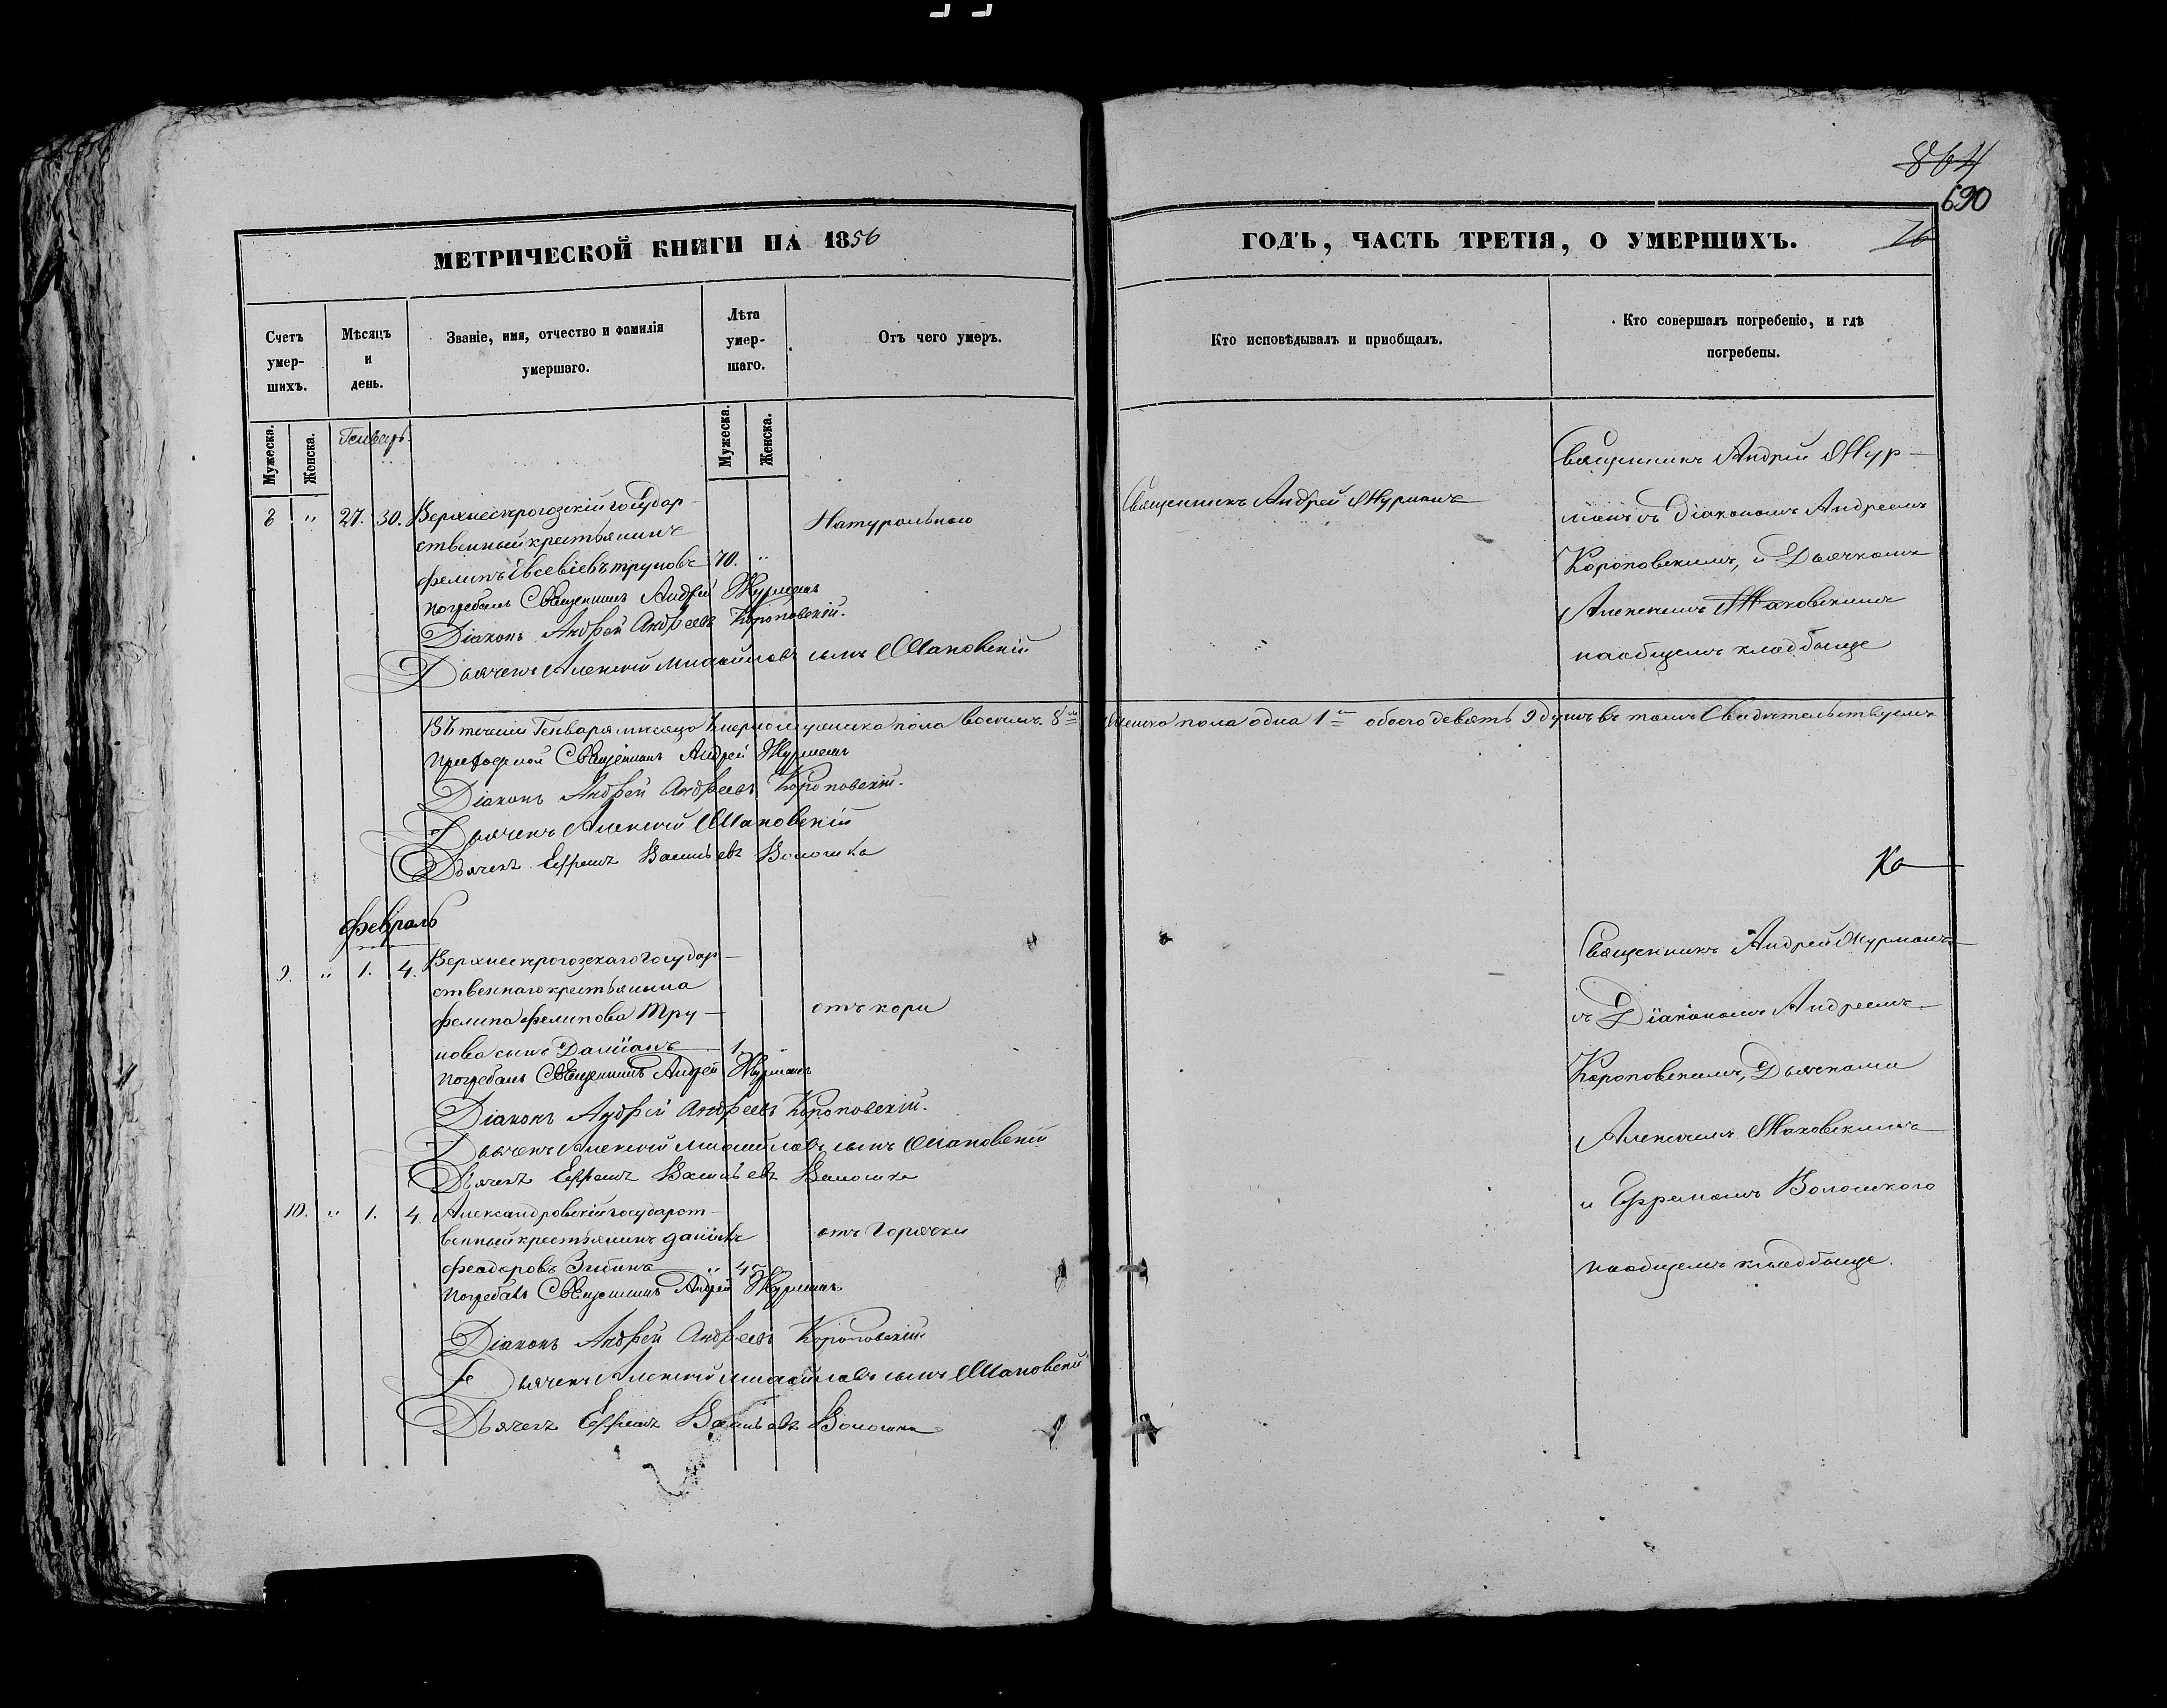 864
690
76
МЕТРИЧЕСКОЙ КНИГИ НА 1856
ГОДЪ, ЧАСТЬ ТРЕТІЯ, О УМЕРШИХЪ.
Счетъ умер-шихъ.
Мѣсяцъ и день.
Званіе, имя, отчество и фамилія умершаго.
Лѣта умер-шаго.
Отъ чего умеръ.
Кто исповѣдывалъ и приобщалъ.
Кто совершалъ погребеніе, и гдѣ погребены.
Мужеска.
Женска.
Генварь.
Мужеска.
Женска.
8 " 27. 30. Верхнесерогозскій государ-
ственный крестьянинъ
Филипъ Евсевіевъ Труновъ 70. "
Натурально
Погребалъ Священникъ Андрей Журманъ
Діаконъ Андрей Андреевъ Короповскій.
Дьячекъ Алексій Михайловъ сынъ Маковскій
Священникъ Андрей Журманъ
Священникъ Андрей Жур-
манъ съ Діакономъ Андреемъ
Короповскимъ, и Дьячкомъ
Алексѣемъ Маковскимъ
на общемъ кладбище
Въ теченіи Генваря мѣсяца умерло мужеска пола восемь 8 женска пола одна 1 обоего девять 9 душъ въ томъ Свидѣтельствуемъ
Приходской Священникъ Андрей Журманъ
Діаконъ Андрей Андреевъ Короповскій.
Дьячекъ Алексій Маковскій
Дьячекъ Ефремъ Васильевъ Волошка
Февраль
9. " 1. 4. Верхнесерогозскаго государ-
ственнаго крестьянина
Филипа Филипова Тру-
нова сынъ Даміанъ 1. "
отъ кори
Погребалъ Священникъ Андрей Журманъ
Діаконъ Андрей Андреевъ Короповскій.
Дьячекъ Алексій Михайловъ сынъ Маковскій
Дьячекъ Ефремъ Васильевъ Волошка
Священникъ Андрей Журманъ
съ Діакономъ Андреемъ
Короповскимъ, Дьячками
Алексѣемъ Маковскимъ
и Ефремомъ Волошкою
на общемъ кладбище.
10. " 1. 4. Александровскій государст-
венный крестьянинъ
Феодоровъ 45
отъ горячки
Погребалъ Священникъ Андрей Журманъ
Діаконъ Андрей Андреевъ Короповскій
Дьячекъ Алексій Михайловъ сынъ Маковскій
Дьячекъ Ефремъ Васильевъ Волошка